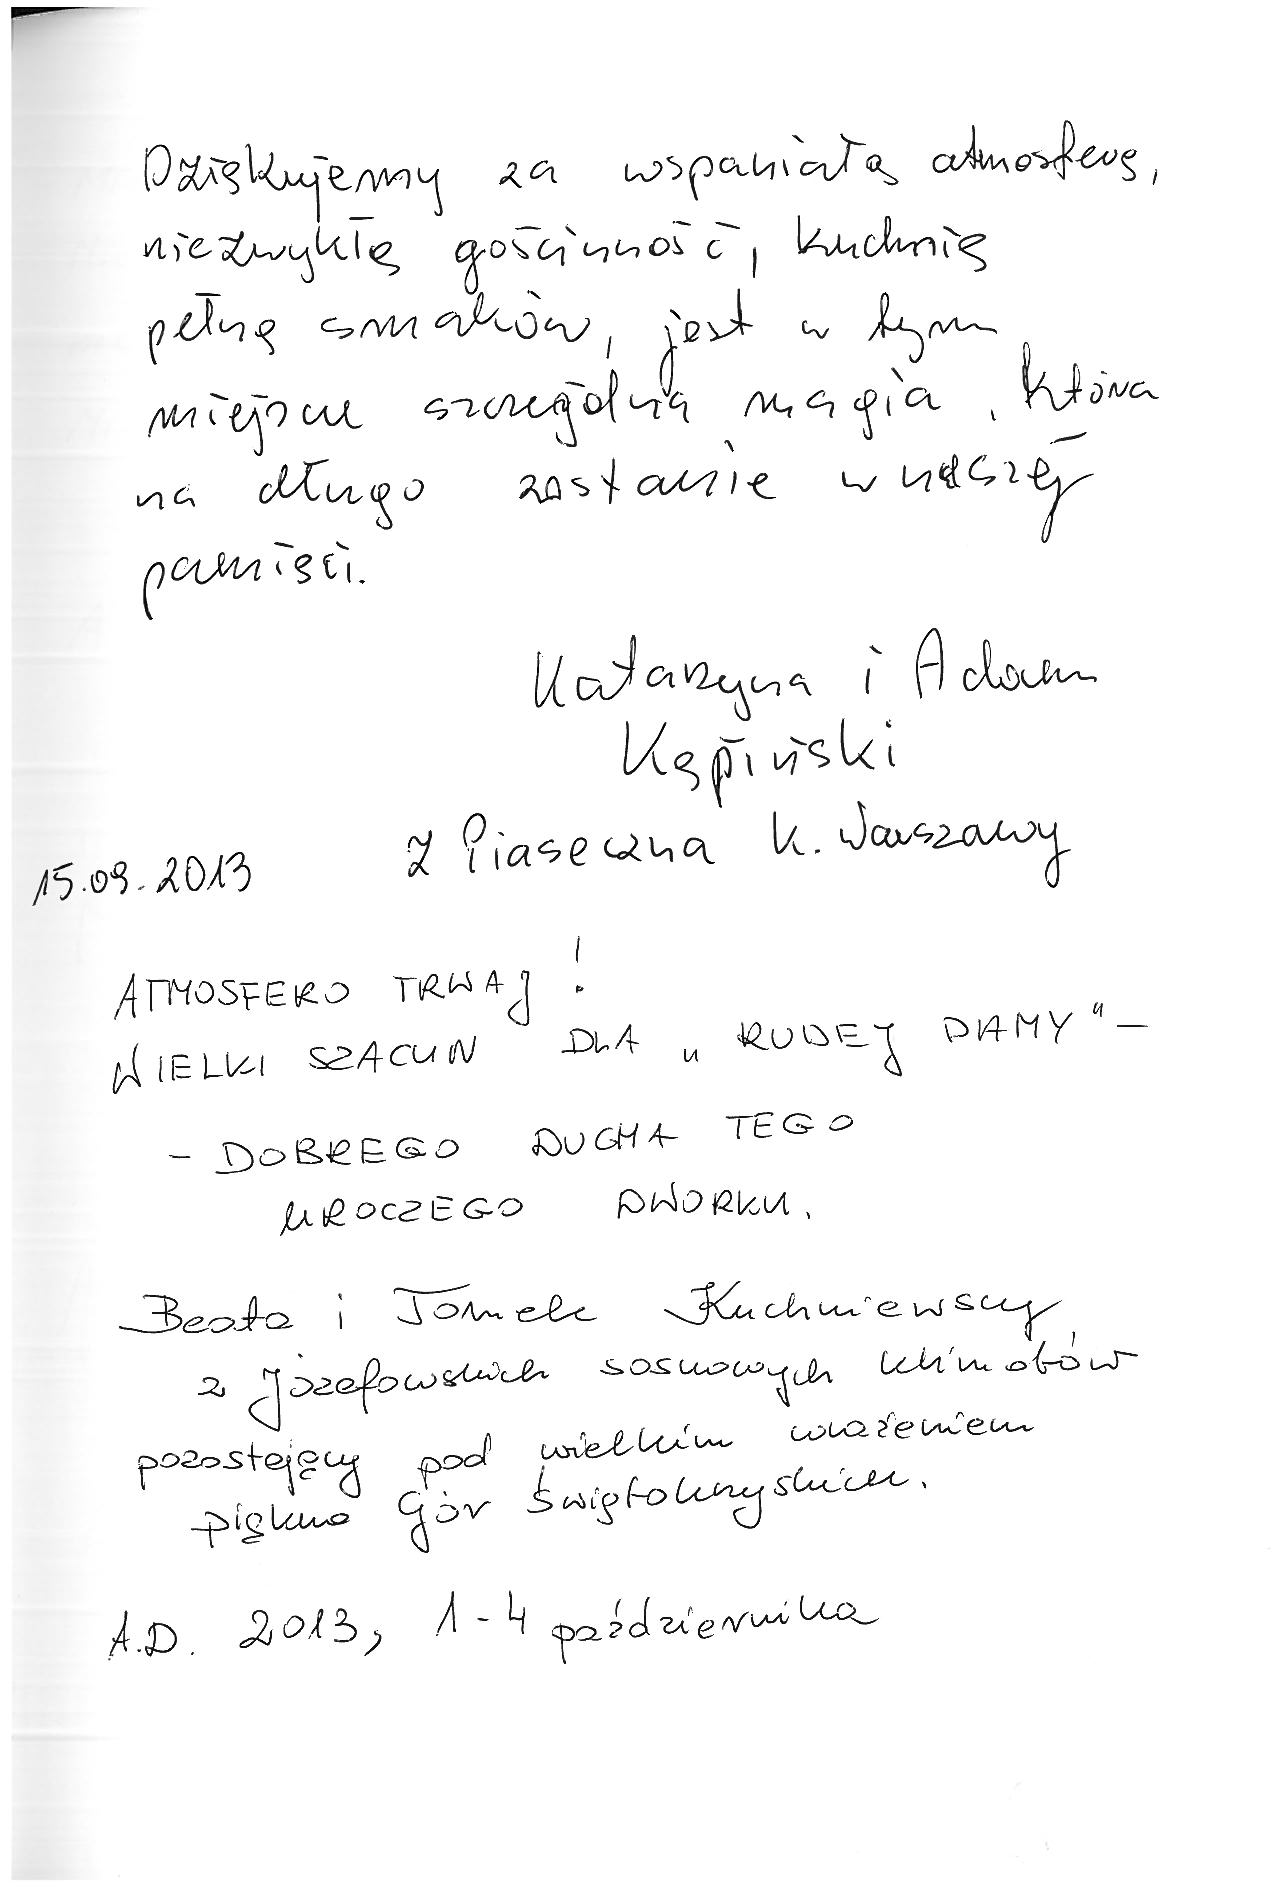 Dziękujemy za wspaniałą atmosferę,
niezwykłą gościnność, kuchnię
pełną smaków, jest w tym
miejscu szczególna magia, która
na długo zostanie w naszej
pamięci.
Katarzyna i Adam
Kępiński
z Piaseczna k. Warszawy
15.09.2013
ATMOSFERO TRWAJ!
WIELKI SZACUN DLA „RUDEJ DAMY" –
– DOBREGO DUCHA TEGO
UROCZEGO DWORKU.
Beata i Tomek Kuchniewscy
z józefowskich sosnowych klimatów,
pozostający pod wielkim wrażeniem
piękna Gór Świętokrzyskich.
A.D. 2013, 1-4 października